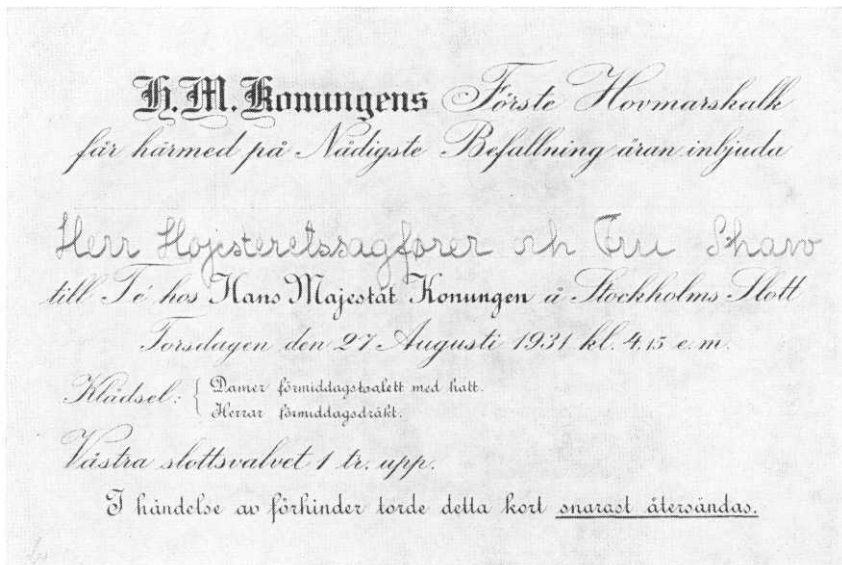 H. M. Konungens Förste Hovmarskalk
får härmed på Nådigste Befallning äran inbjuda
Herr Højesteretssagfører och Fru Shaw
till Té hos Hans Majestät Konungen å Stockholms Slott
Torsdagen den 27 Augusti 1931 kl. 4.15 e.m.
Klädsel: { Damer förmiddagstoalett med hatt.
Herrar förmiddagsdräkt.
Västra slottsvalvet 1 tr. upp.
I händelse av förhinder torde detta kort snarast återsändas.